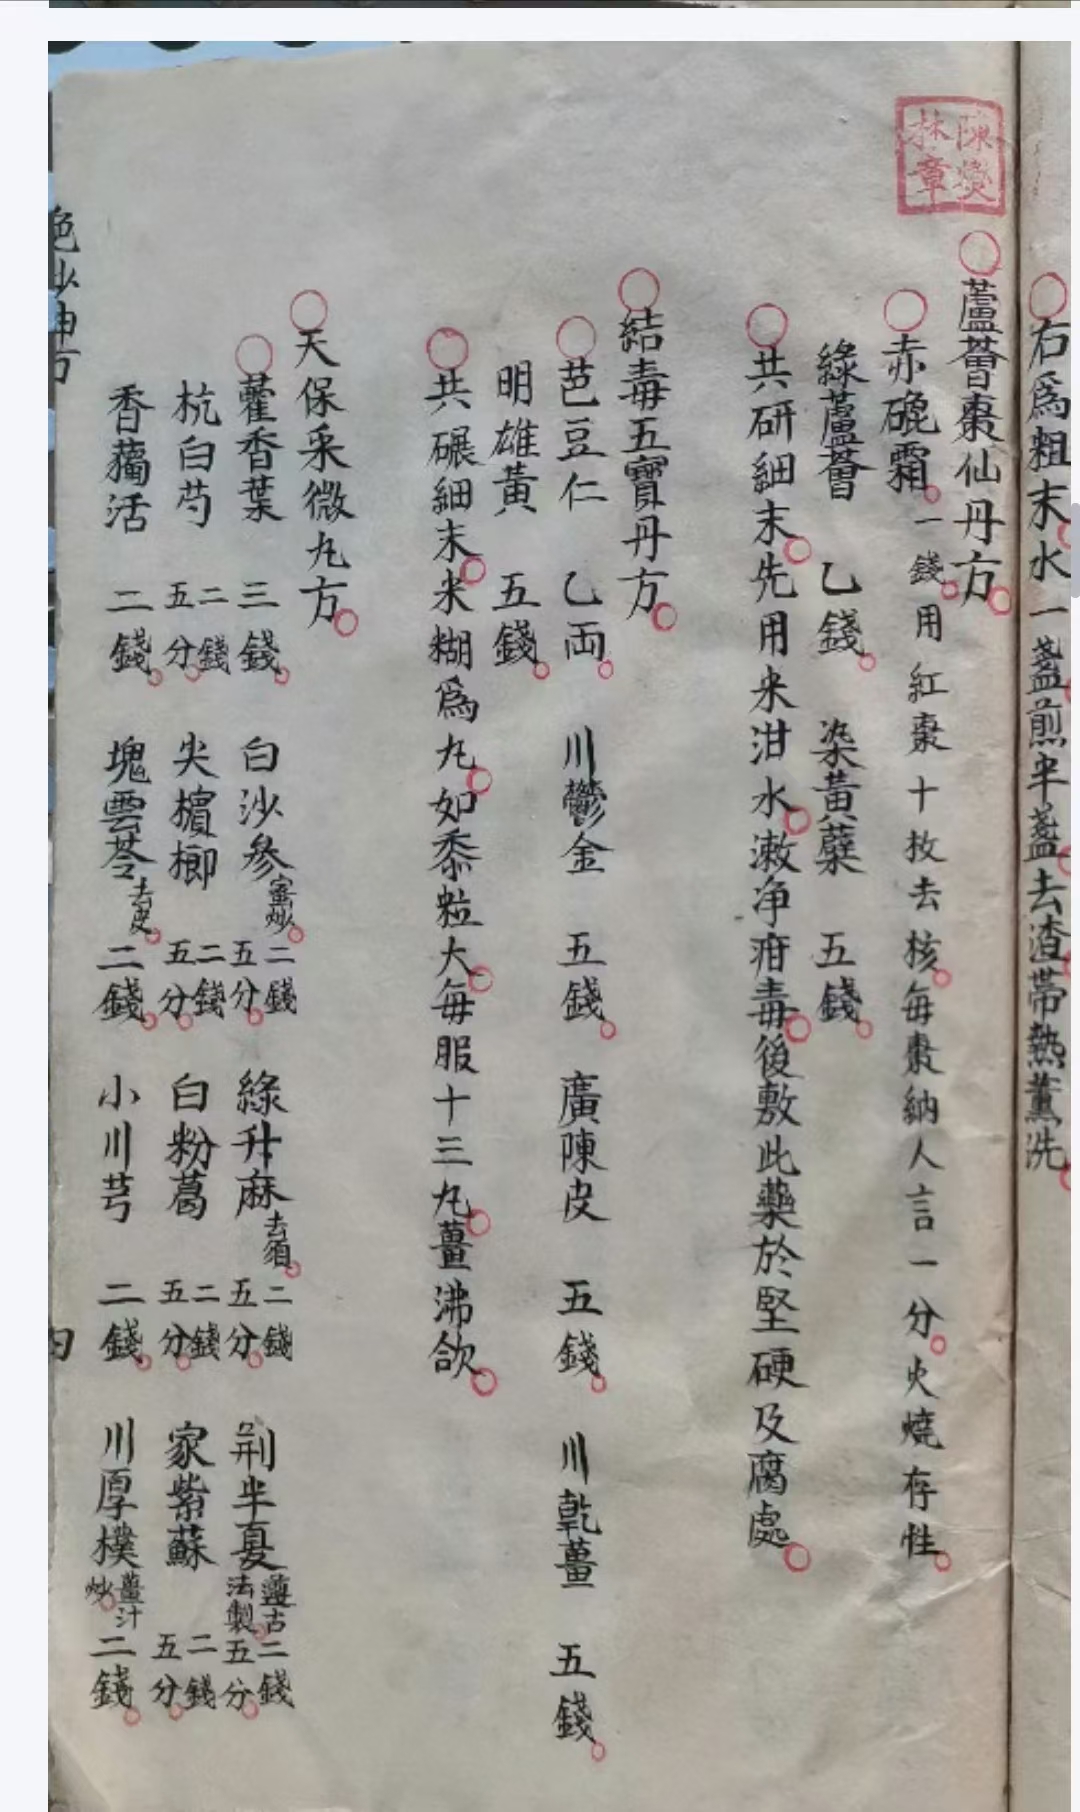 右爲粗末水一盞煎半盞去渣帶熱薰洗
陳燮林章
蘆薈棗仙丹方
赤硇霜一錢用紅棗十枚去核每棗納人言一分火燒存性
綠蘆薈 乙錢 染黃蘗 五錢
共研細末先用米泔水漱净疳毒後敷此藥於堅硬及腐處
結毒五寶丹方
芭豆仁 乙両 川鬱金 五錢 廣陳皮 五錢 川乾薑 五錢
明雄黃 五錢
共碾細末米糊爲丸如黍粒大每服十三丸薑沸飲
天保采微丸方
藿香葉 三錢 白沙參蜜炒 二錢五分 綠升麻去須 二錢五分 荆半夏遵古法製 二錢五分
杭白芍 二錢五分 尖檳榔 二錢五分 白粉葛 二錢五分 家紫蘇 二錢五分
香獨活 二錢 塊雲苓去皮 二錢 小川芎 二錢 川厚樸薑汁炒 二錢